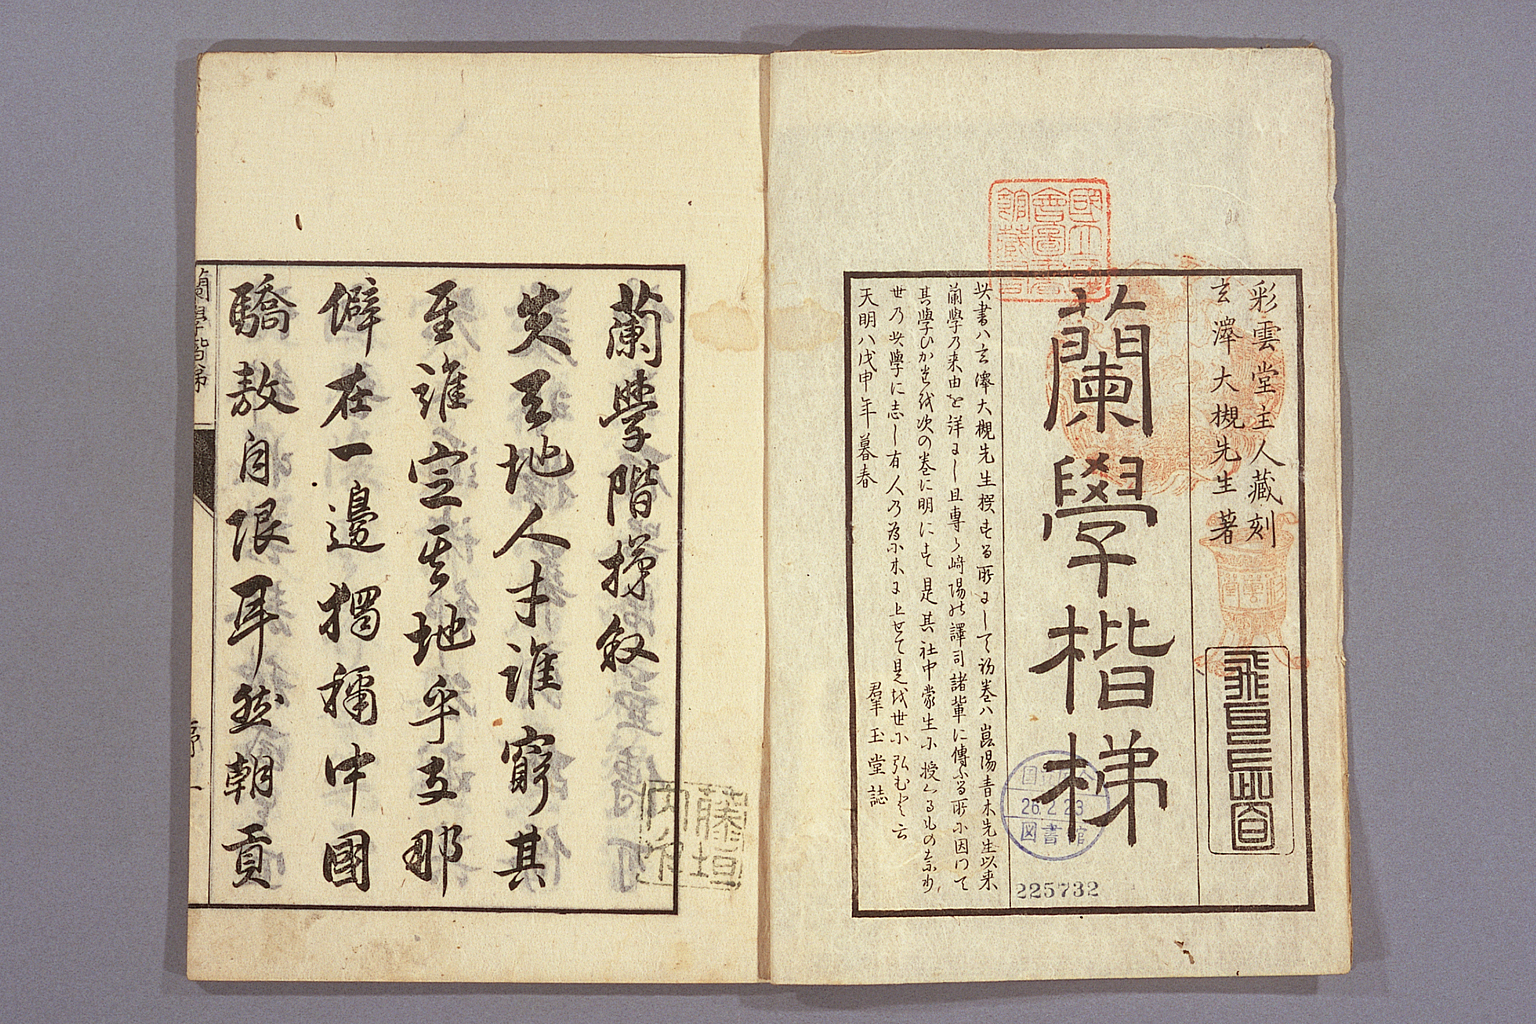 彩雲堂主人藏刻
玄澤大槻先生著
蘭學楷梯
此書ハ玄澤大槻先生撰する所にして初巻ハ崑陽青木先生以来
蘭學乃来由を詳にし且専ら﨑陽の譯司諸輩に傳ふる所に因つて
其學ひかたを次の巻に明にす是其社中蒙生に授くるもの
世乃此學に志し有人乃為に木に上せて是を世に弘むと云
天明八戊申年暮春
羣玉堂誌
國立國會圖書館藏書
26.2.23
図書館
225732
蘭學階梯敘
夫天地人才誰窮其
至誰定其地乎支那
僻在一邊獨稱中國
驕敖自限耳然朝貢
蘭學階梯
序
一
藤垣